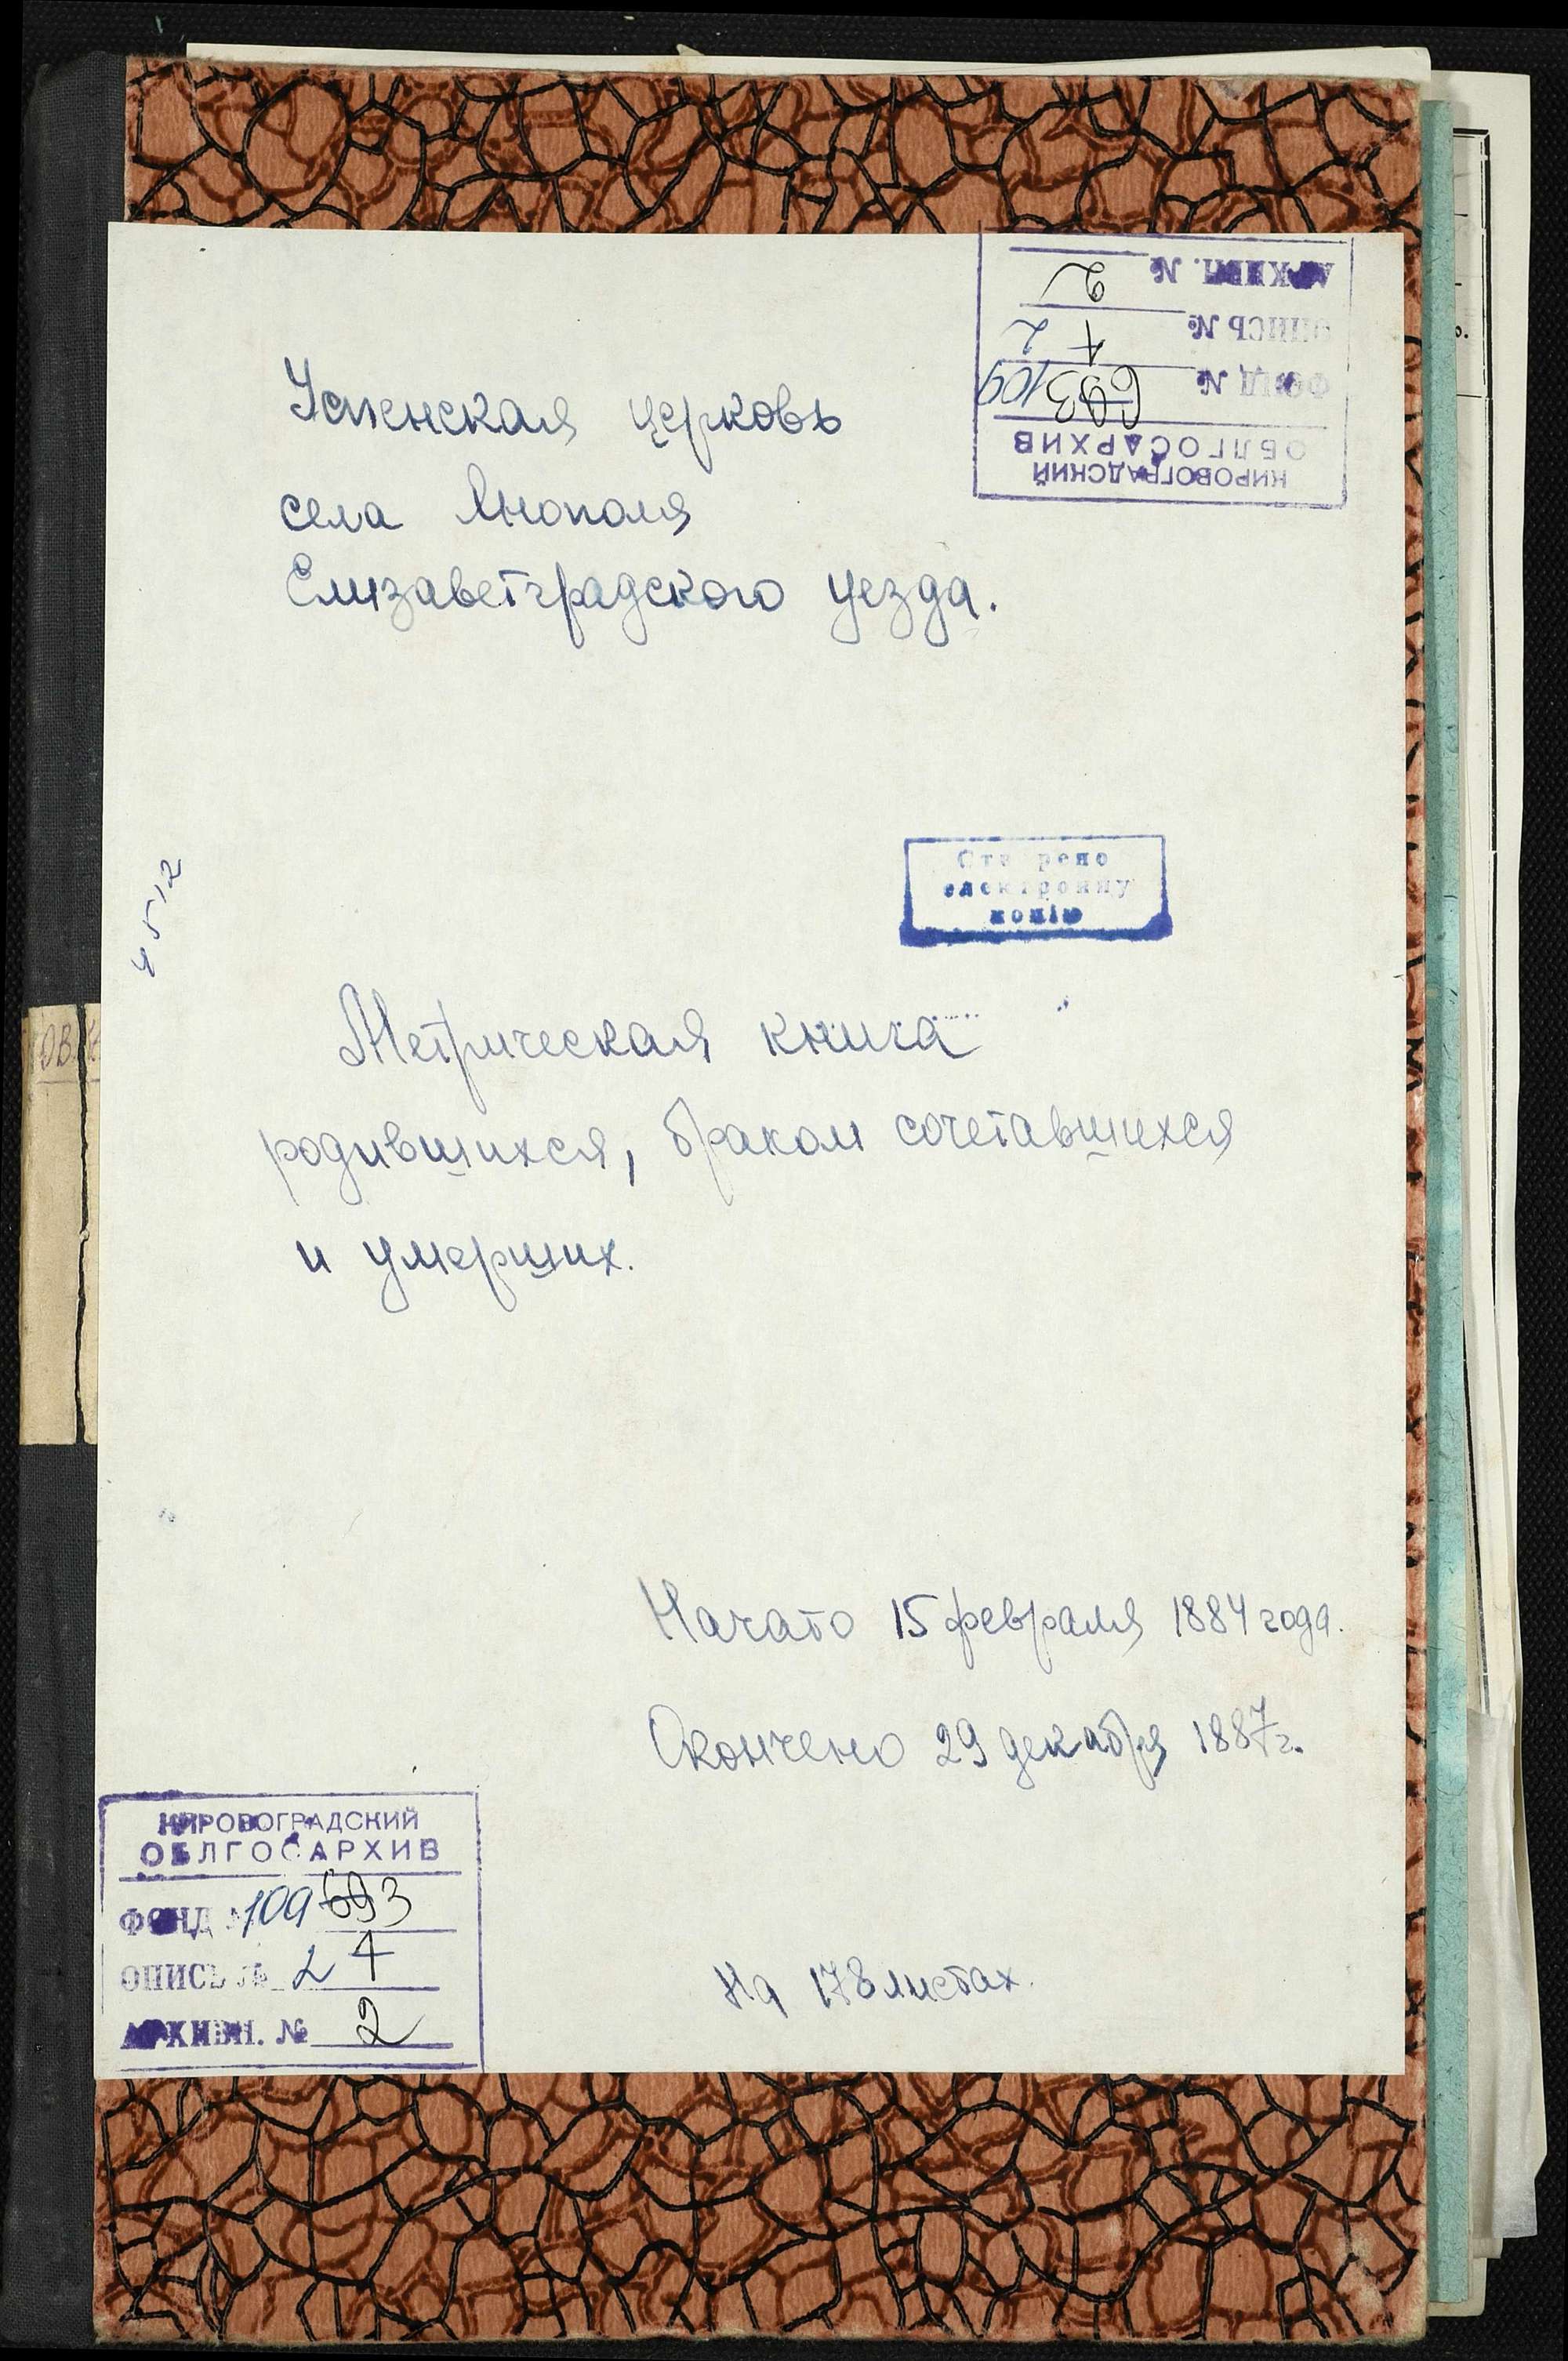 КИРОВОГРАДСКИЙ
ОБЛГОСАРХИВ
ФОНД № 693 109
ОПИСЬ № 1 2
АРХИВН. № 2
Успенская церковь
села Янополя
Елизаветградского уезда.
Створено
електронну
копію
4512
Метрическая книга
родившихся, браком сочетавшихся
и умерших.
Начато 15 февраля 1884 года.
Окончено 29 декабря 1887 г.
КИРОВОГРАДСКИЙ
ОБЛГОСАРХИВ
ФОНД № 109 693
ОПИСЬ № 2 1
АРХИВН. № 2
На 178 листах.